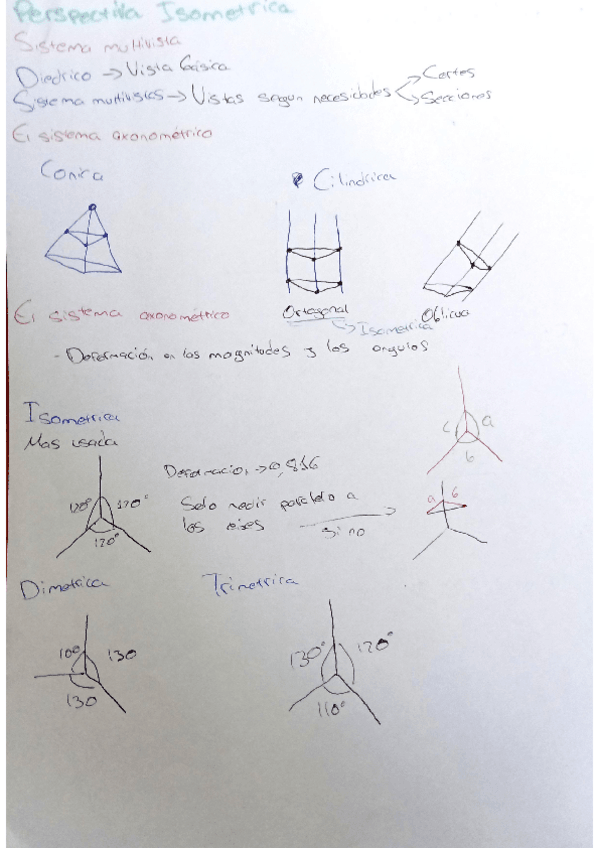 Perspectiva Isometrica
Sistema multivista
Diedrico → Vista básica
Sistema multivistas → Vistas segun necesidades
Cortes
Secciones
El sistema axonométrico
Conica
Cilindrica
El sistema axonométrico
Ortogonal
Oblicua
→ Isometrica
- Deformación en los magnitudes y los angulos
Isometrica
Mas usada
Deformacion → 0,816
Solo medir paralelo a
los ejes
si no
120°
120°
120°
c
a
b
a
b
Dimetrica
Trimetrica
100°
130
130
130°
120°
110°